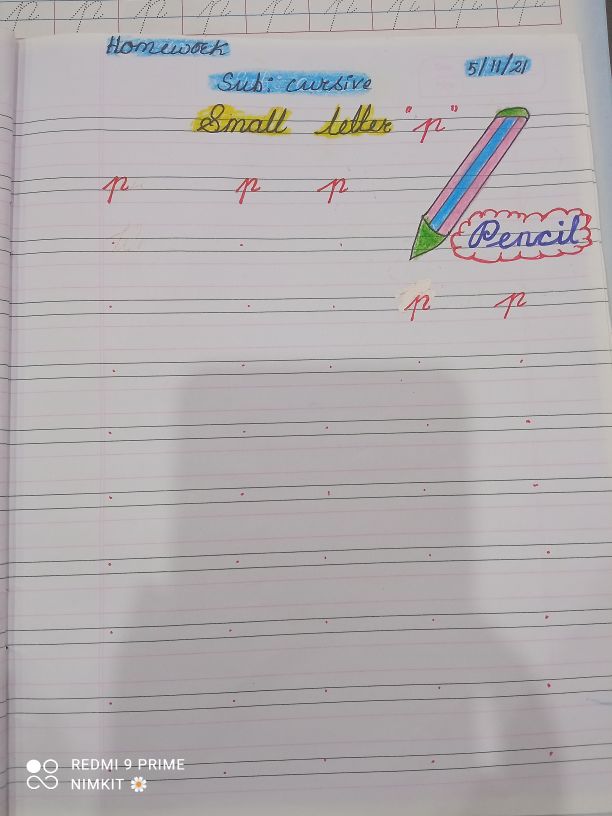 p p p p p p p p
Homework
5/11/21
Sub: cursive
Small letter "p"
p p p
Pencil
p p
REDMI 9 PRIME
NIMKIT